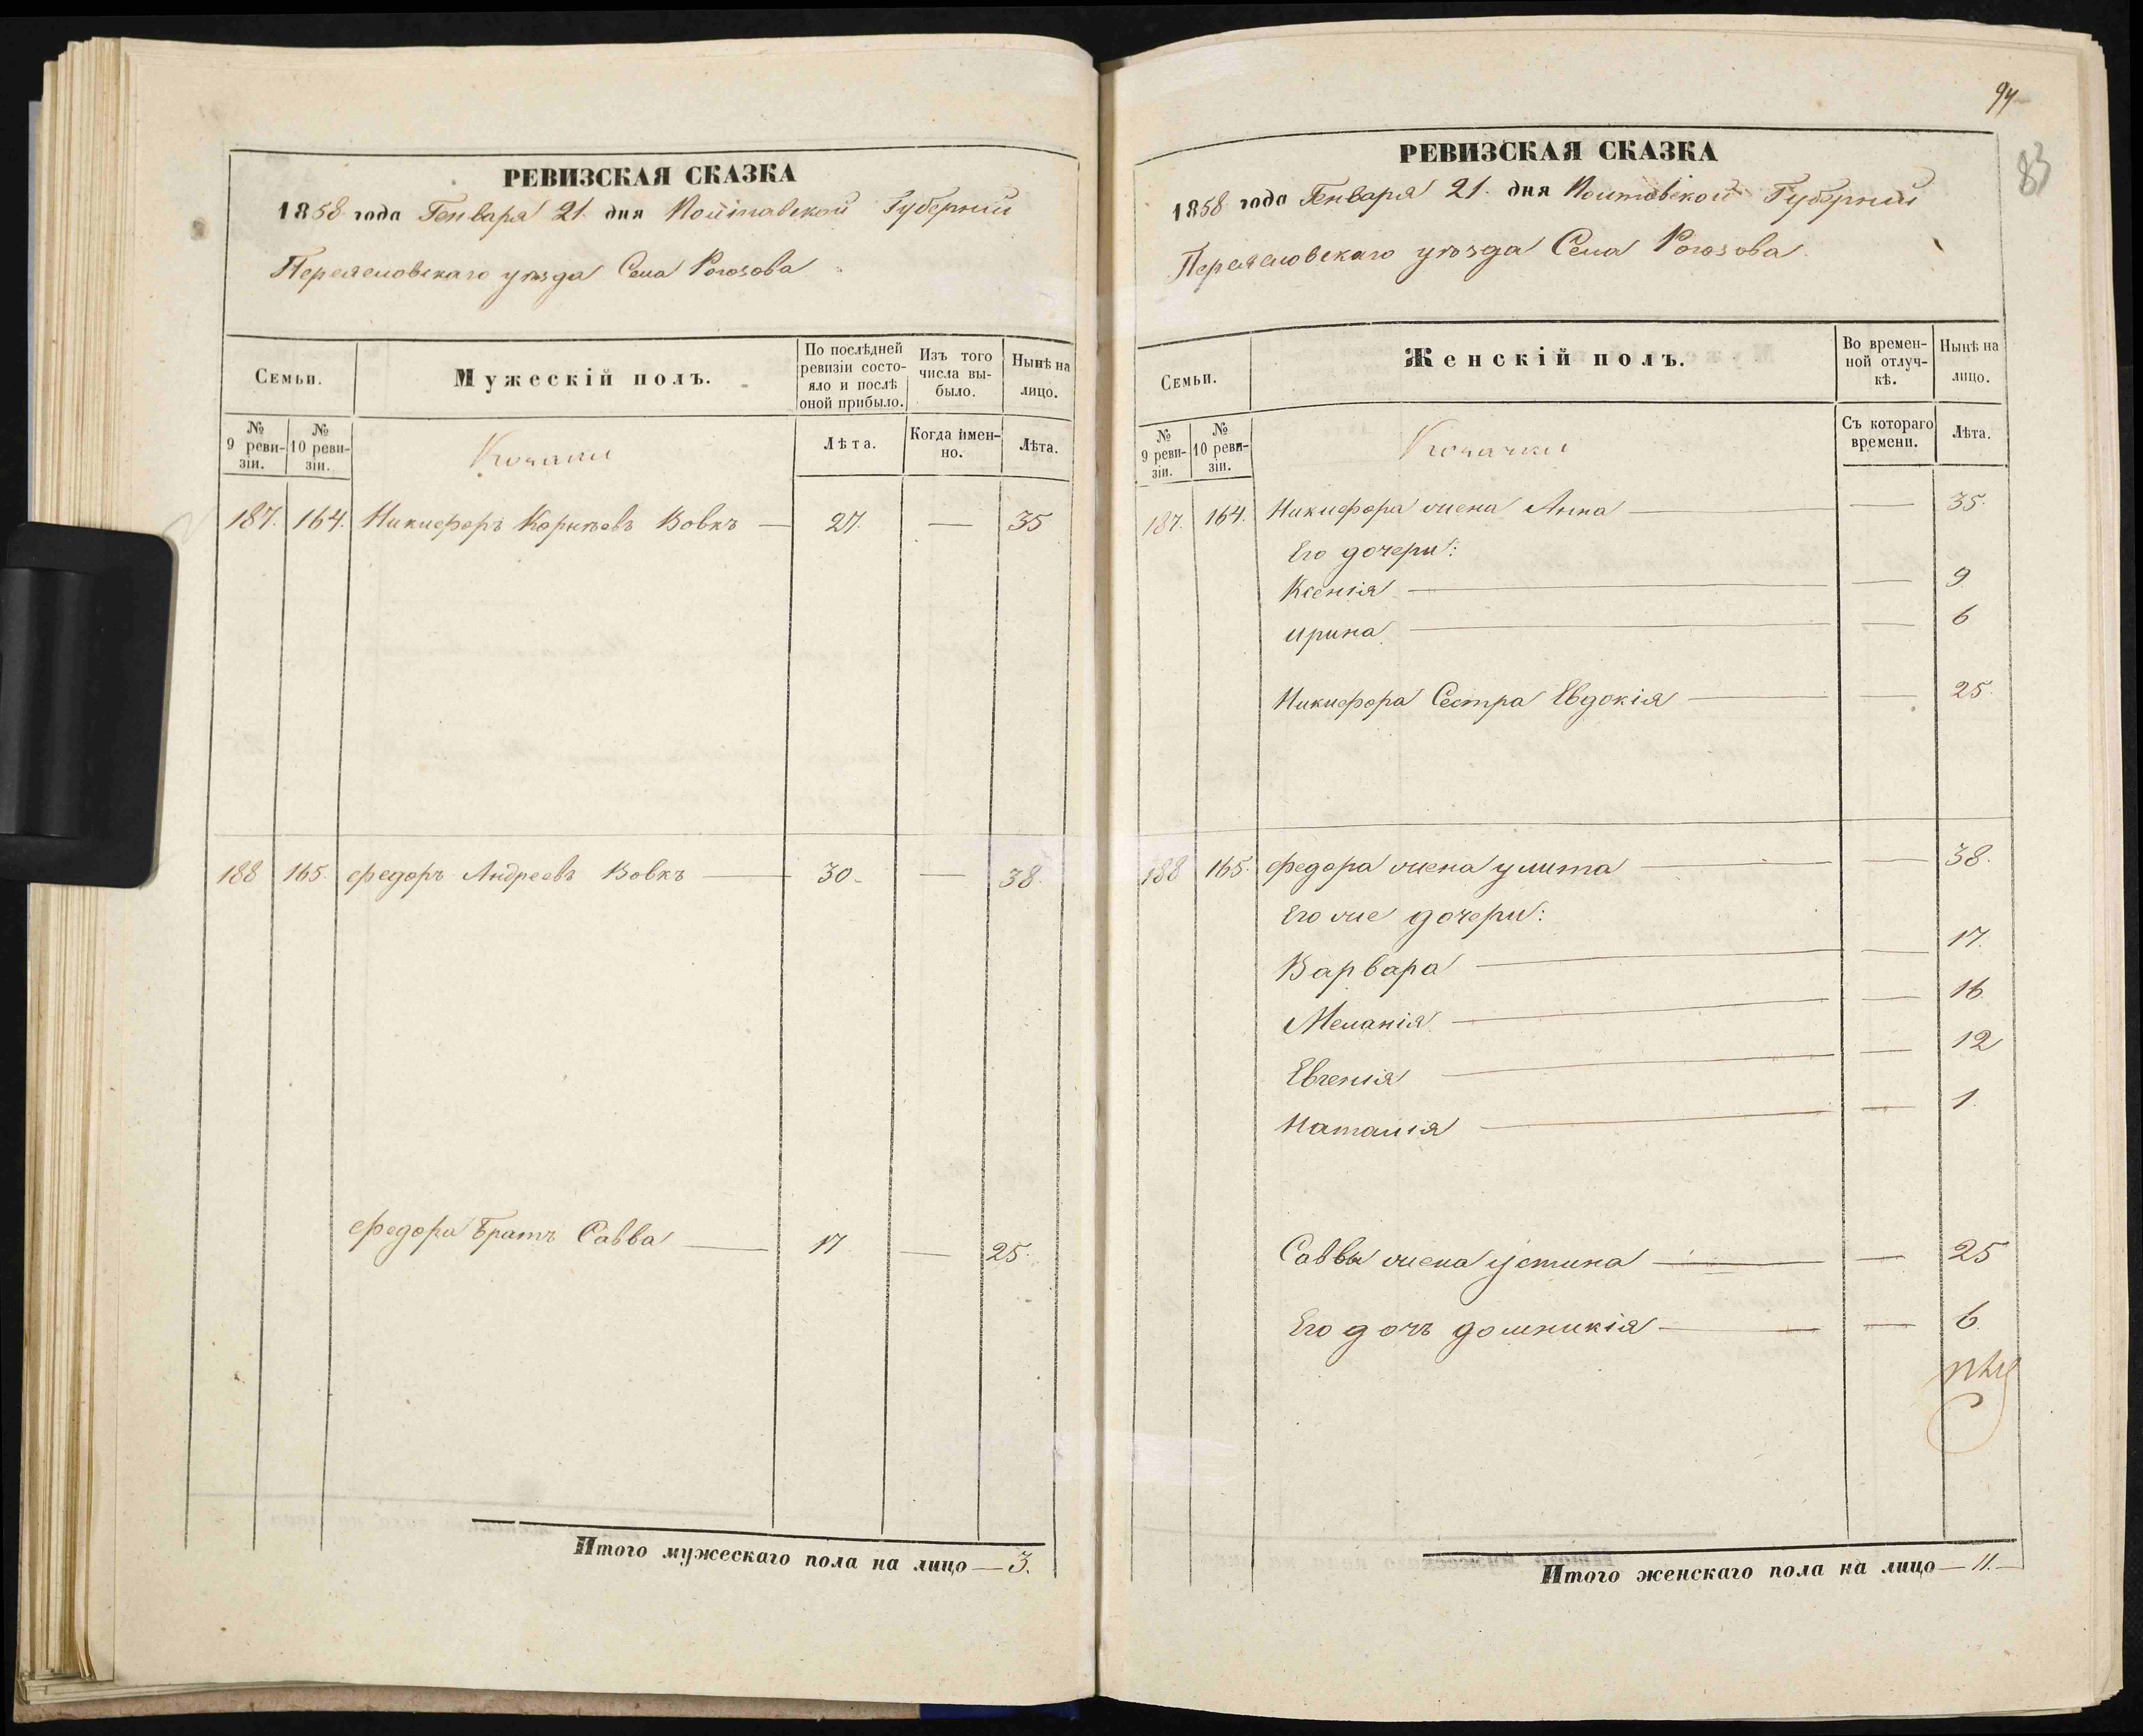 РЕВИЗСКАЯ СКАЗКА
1858 года Генваря 21. дня Полтавской Губернии
Переясловскаго уѣзда Села Рогозова
Семьи.
Мужескій полъ.
По послѣдней ревизіи состояло и послѣ оной прибыло.
Изъ того числа выбыло.
Нынѣ на лицо.
№ 9 ревизіи.
№ 10 ревизіи.
Козаки
Лѣта.
Когда имен-но.
Лѣта.
187. 164. Никифоръ Корнѣевъ Вовкъ — 27. — 35
188 165. Федоръ Андреевъ Вовкъ — 30. — 38.
Федора Братъ Савва — 17 — 25.
Итого мужескаго пола на лицо — 3.
94
83
РЕВИЗСКАЯ СКАЗКА
1858 года Генваря 21. дня Полтавской Губернии
Переясловскаго уѣзда Села Рогозова
Семьи.
Женскій полъ.
Во времен-ной отлуч-кѣ.
Нынѣ на лицо.
№ 9 реви-зіи.
№ 10 реви-зіи.
Козачки
Съ котораго времени.
Лѣта.
187. 164. Никифора жена Анна — — 35.
Его дочери:
Ксенія — — 9
Ирина — — 6
Никифора Сестра Евдокія — — 25.
188 165. Федора жена Улита — — 38.
Его же дочери:
Варвара — — 17.
Меланія — — 16
Евгенія — — 12
Наталія — — 1.
Саввы жена Устина — — 25
Его дочь Домникія — — 6
Итого женскаго пола на лицо — 11.